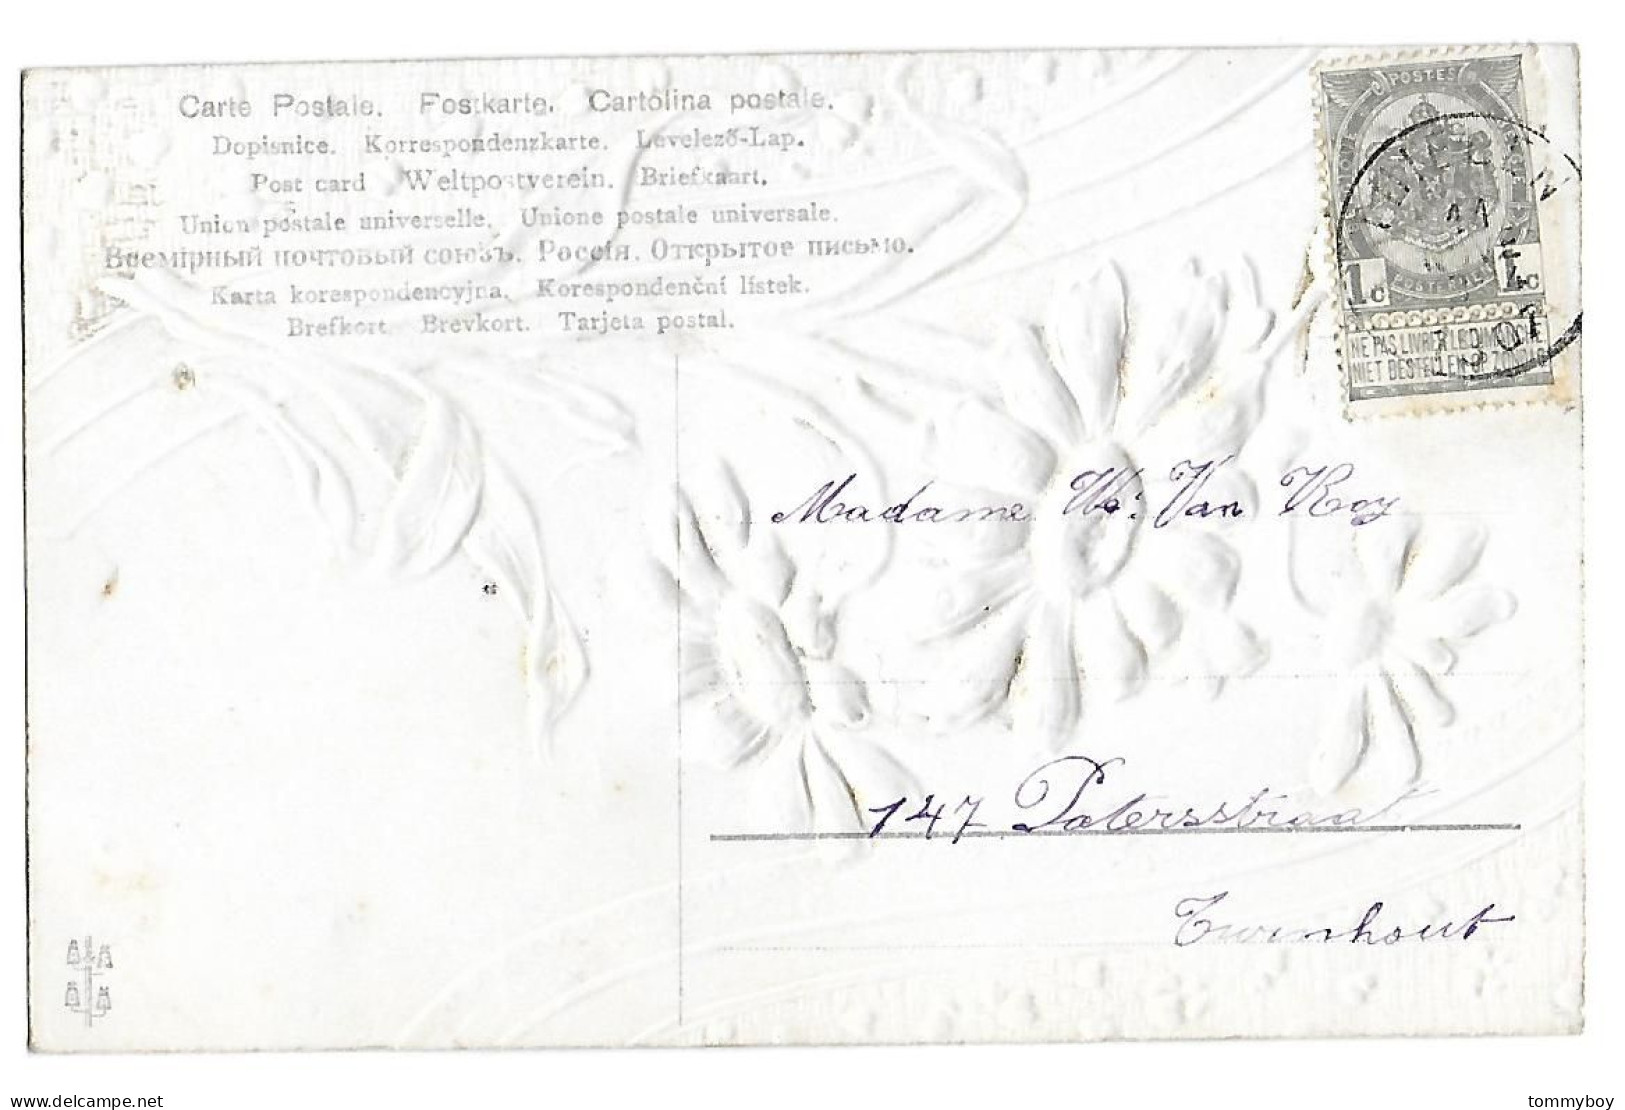 Carte Postale. Postkarte. Cartolina postale.
Dopisnice. Korrespondenzkarte. Levelező-Lap.
Post card Weltpostverein. Briefkaart.
Union postale universelle. Unione postale universale.
Всемірный почтовый союзъ. Россія. Открытое письмо.
Karta korespondencyjna. Korespondenční lístek.
Brefkort. Brevkort. Tarjeta postal.
POSTES
11
07
1c 1c
NE PAS LIVRER LE DIMANCHE
NIET BESTELLEN OP ZONDAG
Madame We: Van Roy
147 Patersstraat
Turnhout
delcampe.net
tommyboy